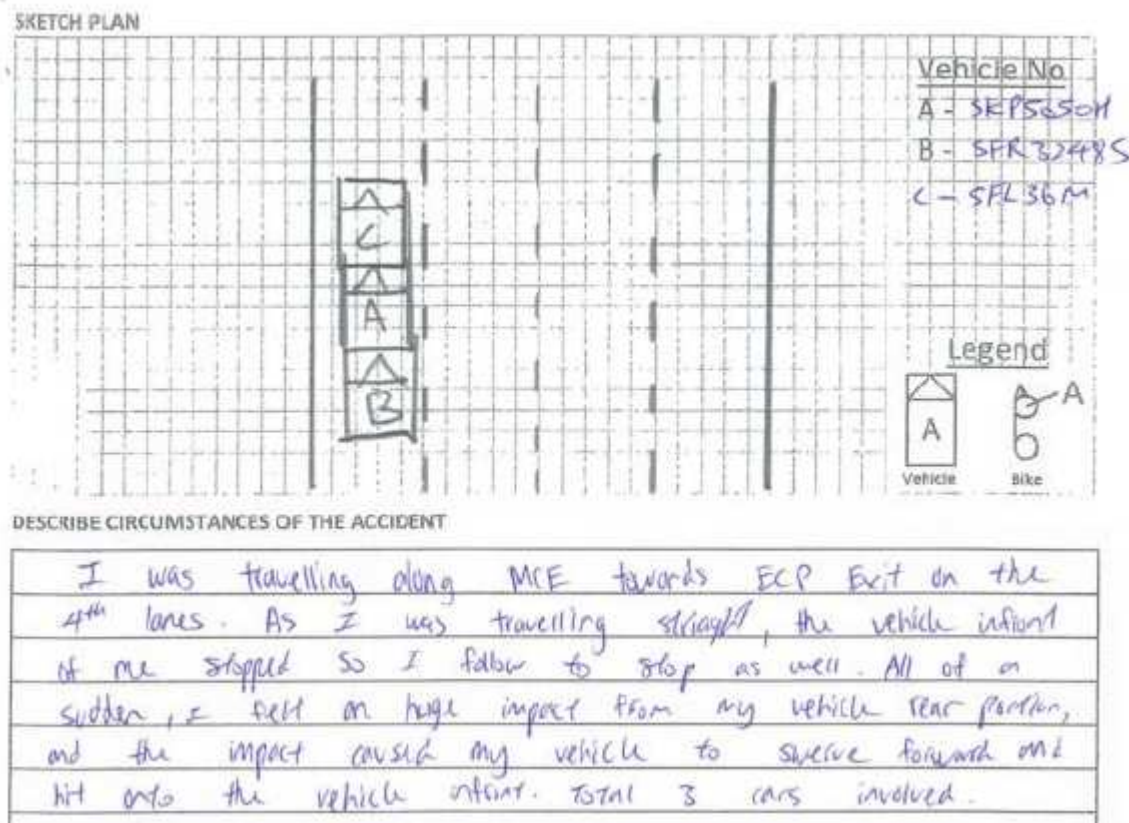 SKETCH PLAN
Vehicle No
A - SKP5650H
B - SFR3248S
C - SFL36M
C
A
A
B
Legend
A
A
Vehicle
Bike
DESCRIBE CIRCUMSTANCES OF THE ACCIDENT
I was travelling along MCE towards ECP Exit on the
4th lanes. As I was travelling, the vehicle infront
of me stopped so I follow to stop as well. All of a
sudden, I felt an huge impact from my vehicle rear portion,
and the impact caused my vehicle to swerve forward and
hit onto the vehicle infront. Total 3 cars involved.